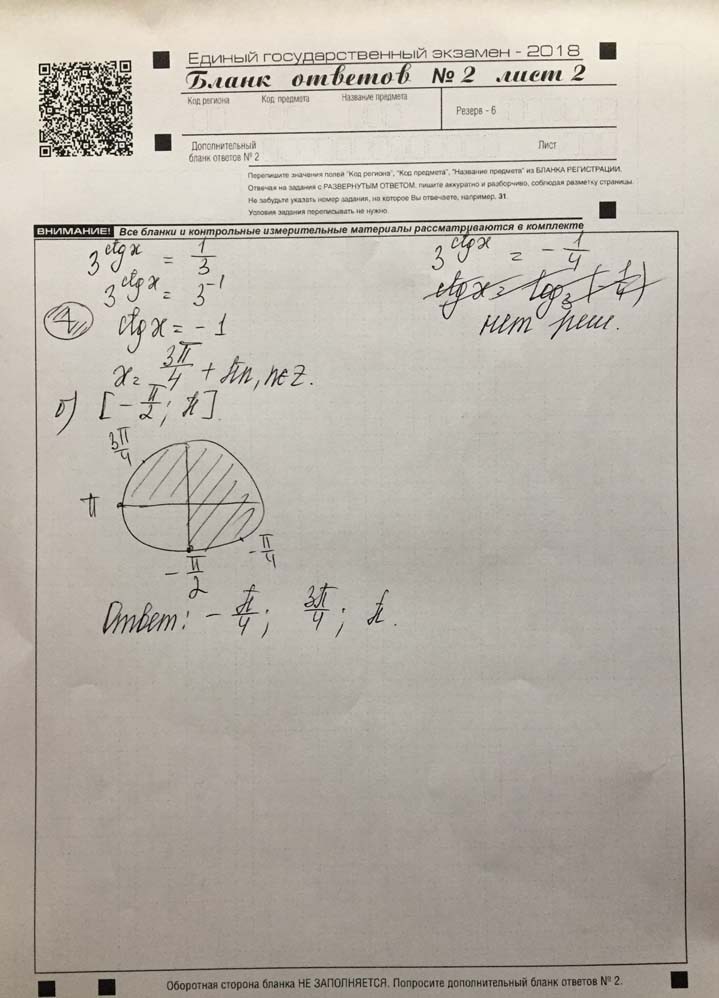 Единый государственный экзамен - 2018
Бланк ответов № 2 лист 2
Код региона Код предмета Название предмета
Резерв - 6
Дополнительный бланк ответов № 2
Лист
Перепишите значения полей "Код региона", "Код предмета", "Название предмета" из БЛАНКА РЕГИСТРАЦИИ.
Отвечая на задания с РАЗВЕРНУТЫМ ОТВЕТОМ, пишите аккуратно и разборчиво, соблюдая разметку страницы.
Не забудьте указать номер задания, на которое Вы отвечаете, например, 31.
Условия задания переписывать не нужно.
ВНИМАНИЕ! Все бланки и контрольные измерительные материалы рассматриваются в комплекте
3^{ctg x} = 1/3
3^{ctg x} = 3^{-1}
ctg x = -1
x = 3π/4 + πn, n∈Z.
3^{ctg x} = -1/4
ctg x = log_3(-1/4)
нет реш.
б) [-π/2; π]
3π/4
π
-π/4
-π/2
Ответ: -π/4; 3π/4; π.
Оборотная сторона бланка НЕ ЗАПОЛНЯЕТСЯ. Попросите дополнительный бланк ответов № 2.